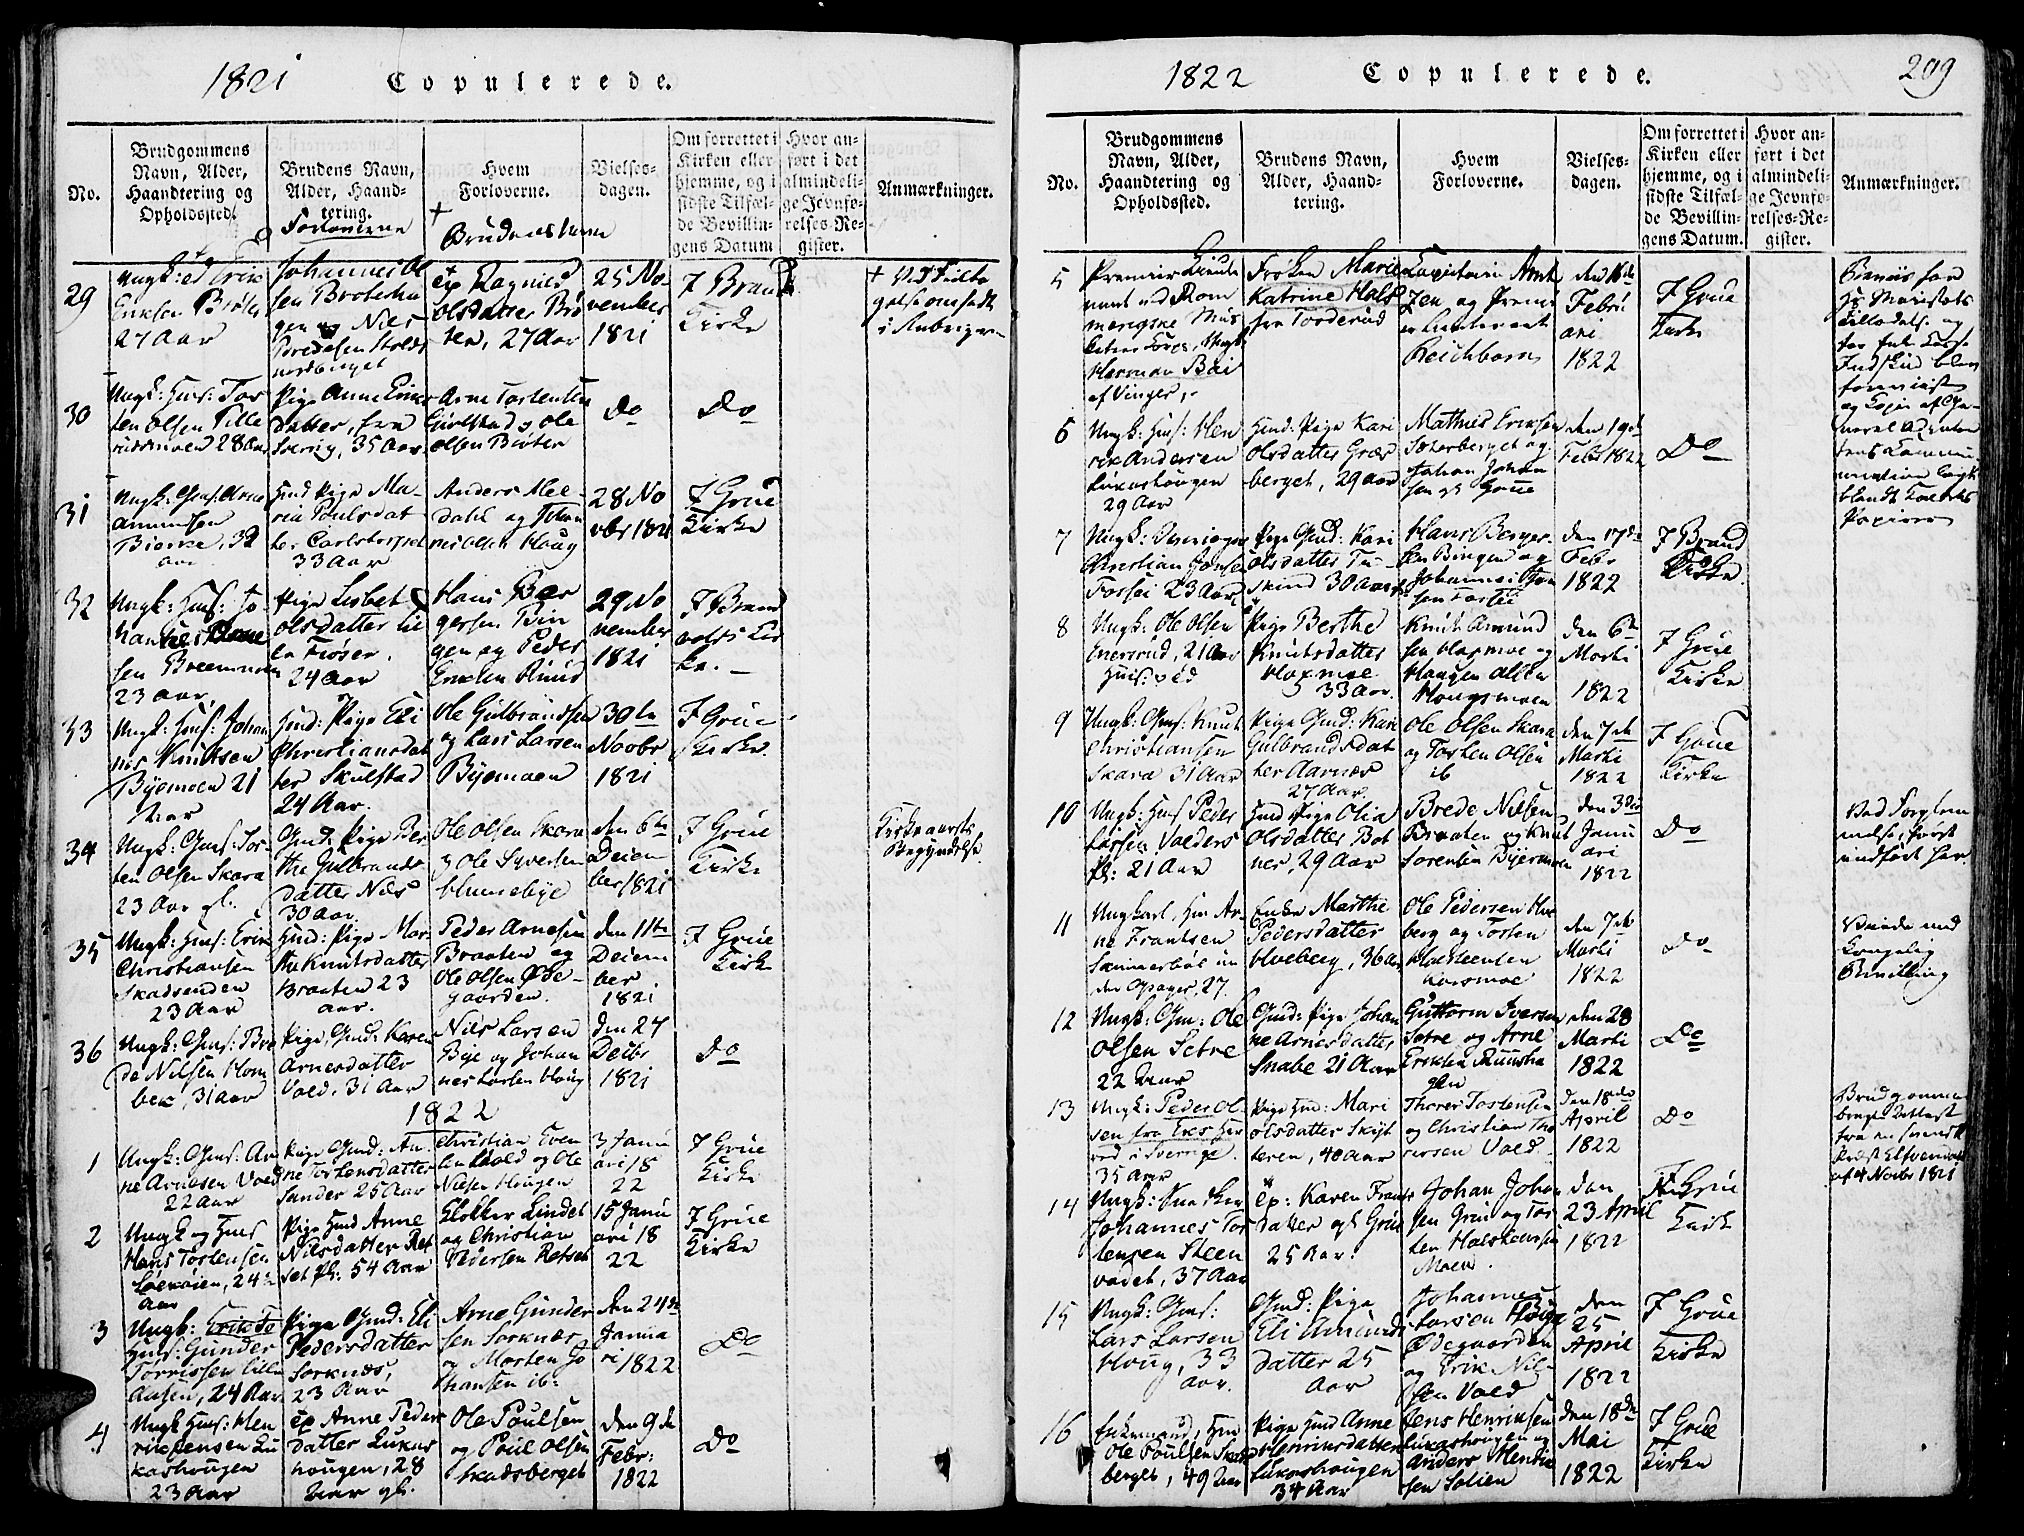 1821 Copulerede.
No.
Brudgommens
Navn, Alder,
Haandtering og
Opholdssted.
Brudens Navn,
Alder, Haand-
tering.
Forloverne
Hvem
Forloverne.
+
Brudens Navn
Vielses-
dagen.
Om forrettet i
Kirken eller
hjemme, og i
sidste Tilfæl-
de Bevillin-
gens Datum
Hvor an-
ført i det
almindeli-
ge Jevnfø-
relses-Re-
gister.
Anmærkninger.
29
Ungk: Erik
Eriksen
27 Aar
Johannes Ol
sen
gen og Nils
+
Ep Ragnild
olsdatter Brø
ten, 27 Aar
25 No-
vember
1821
I Brand
Kirke
30
Ungk: Huus: Tor
sten Olsen Tille
28 Aar
Pige Anne Einer
datter, fra
35 Aar
Arne Torstensen
og Ole
olsen Brøter
Do
Do
31
Amundsen
Bierke, 32
aar
Huusd Pige Ma-
ria Poulsdat
ter Carlsberget
33 Aar
Anders Mee-
dahl og
nes olsen Houg
28 No
vbr 1821
I Grue
Kirke
32
Ungk: Huus: Jo
hannes
sen
23 Aar
Pige Lisbet
olsdatter lil
le Froser.
24 Aar
Hans Ber
gersen Bin
gen og Peder
Eriksen
29 No
vember
1821
I Brand
volds Kir
ke.
33
Ungk: Huus: Johan
nes Knudsen
Byemoen 21
Aar
Huusd: Pige Eli
Christiansdat
ter Skulstad
24 Aar.
Ole Gulbrandsen
og Lars Larsen
Byemoen
30te
Novbr
1821
I Grue
Kirke.
34
Ungk: Gms: Tor-
sten Olsen Skara
23 Aar gl.
Gmd: Pige Ber
the Gulbrands
datter Næs
30 Aar.
Ole Olsen Skara
og Ole Syversen
den 6te
Decem
ber 1821
I Grue
Kirke
Kirkeaarets
Begyndelse
35
Ungk: Huus: Erik
Christiansen
Skadsenden
23 Aar
Huusd: Pige Mar-
the Knudsdatter
Braaten 23
aar.
Peder Arnesen
Braaten og
Ole Olsen Øde-
gaarden.
den 11te
Decem
ber
1821
I Grue
Kirke
36
Ungk: Gms: Bre
de Nilsen Horn
bek, 31 Aar
Pige Gmd: Karen
Arnesdatter
Vold, 31 Aar
Nils Larsen
Bye og Johan
nes Larsen Houg
den 27
Decbr
1821
Do
1822
1
Ungk: Gms: Ar
ne Arnesen Vold
22 Aar
Pige Gmd: An-
ne Torstensdatter
Sander 25 Aar
Christian Even
sen Vold og Ole
Nilsen Hougen
3 Janu
ari 18
22
I Grue
Kirke
2
Ungk og Huus
Hans Torstensen
24
Aar
Pige Huusd Anne
Nilsdatter Ret
set Pl: 54 Aar
Klokker Lindet
og Christian
Pedersen Retset
15 Janu
ari 18
22
I Grue
Kirke
3
Ungk:
Huus: Gunder
Torrissen lille
24 Aar
Pige Gmd: Eli
Pedersdatter
Sorknæs,
23 Aar
Arne Gunder
sen Sorknæs
og Morten Jo
hansen ib:
den 24de
Janua
ri 1822
Do
4
Ungk Huus: Hen
rik Jensen Lu
kashougen
23 Aar
Ep Anne Peder
datter Lukas
hougen, 28
Aar gl.
Ole Poulsen
og Poul Olsen
Skadsberget
Den 9de
Febr:
1822
Do
1822 Copulerede. 209
No.
Brudgommens
Navn, Alder,
Haandtering og
Opholdssted.
Brudens Navn,
Alder, Haand-
tering.
Hvem
Forloverne.
Vielses-
dagen.
Om forrettet i
Kirken eller
hjemme, og i
sidste Tilfæl-
de Bevillin-
gens Datum.
Hvor an-
ført i det
almindeli-
ge Jevnfø-
relses-Re-
gister.
Anmærkninger.
5
Premier Lieute
nant ved Rom
merigske Mus
Herman Bai
af Vinger,
Frøken Marie
Katrine Hals
fra Torderud
Capitain Arnt
zen og Premi
er Lieutenant
Reichborn
den 18de
Febru
ari
1822
I Grue
Kirke
Bevis for
Hs Majestæts
Tilladelse og
for Enke Casse
Indskud blev
foreviist
og Copie af Ge-
neral Adjutan
tens Commu
nication lagt
blandt Kaldets
Papirer
6
Ungk: Huus: Hen
rik Andersen
Lukashougen
29 Aar
Huusd: Pige Kari
Olsdatter Græs
berget, 29 Aar
Mathis Eriksen
og
Johan Johan
sen Grue
den 19de
Febr 1822
Do
7
Christian Jonsen
Fossei 23 Aar
Pige Gmd: Kari
olsdatter Tu-
skind 30 Aar
Hans Berger-
sen Bingen og
Johannes
sen Fossei
den 17de
Febr
1822
I Brand
Kirke.
8
Ungk: Ole Olsen
Enersrud, 21 Aar
Pige Berthe
Knudsdatter
Hoxmoe
33 Aar
Knud Amund
sen Hoxmoe og
Hougsmoen
den 6te
Marti
1822
I Grue
Kirke
9
Ungk: Gms: Knut
Christiansen
Skara 31 Aar
Pige Gmd: Kari
Gulbrandsdat
ter Aarnæs
27 Aar.
Ole Olsen Skara
og Torsten Olsen
ib
den 7de
Marti
1822
I Grue
Kirke
10
Ungk: Huus Peder
Larsen Valders
Pl: 21 Aar
Huusd Pige Olia
Olsdatter Bot
ner, 29 Aar
Brede Nilsen
Braaten og Knut
Sorensen Byermoen
den 3die
Janu
ari
1822
Do
Ved Forglem
melse, først
indført her
11
Ungkarl, Hus Ar-
ne Frantsen
Skinnerbøl un
der Opager, 27.
Enke Marthe
Pedersdatter
Hveberg, 36 aar
Ole Pedersen Hve
berg og Torsten
Halstensen
den 7de
Marti
1822
Do
Viede med
Kongelig
Bevilling
12
Ungk: Gms: Ole
Olsen Setre
22 Aar
Gmd: Pige Johan
ne Arnesdatter
Snabe 21 Aar
Guttorm Iversen
Setre og Arne
Eriksen
den 28
Marti
1822
Do
13
Ungk: Peder Ol-
sen fra
red i Sverige.
35 aar
Pige Huusd: Mari
Olsdatter Skyt
teren, 40 Aar
Thorer Torstensen
og Christian Tho
rersen Vold.
Den 18de
April
1822
Do
Brudgommen
bragt Attest
fra en svensk
Præst
af 4 Novbr 1821
14
Ungk:
Johannes Tor
stensen Steen
vadet, 37 Aar
Ep: Karen Frants
datter Grue
25 Aar.
Johan Johan
sen Grue og Tor
sten Halstensen
Moen.
den
23 April
1822
I Grue
Kirke
15
Ungk: Gms:
Lars Larsen
Houg, 33
Aar.
Gmd: Pige
Eli Amunds
datter 25
Aar
Johannes
Larsen Houg
Ødegaarden
og Erik Nil-
sen Vold
den
25
April
1822
I Grue
Kirke
16
Enkemand, Huus
Ole Poulsen Skads
berget, 49 Aar
Pige Huusd Anne
Henriksdatter
Lukashougen
34 Aar
Jens Henriksen
Lukashougen og
Anders Henrik
sen Solien
den 18de
Mai
1822
I Grue
Kirke